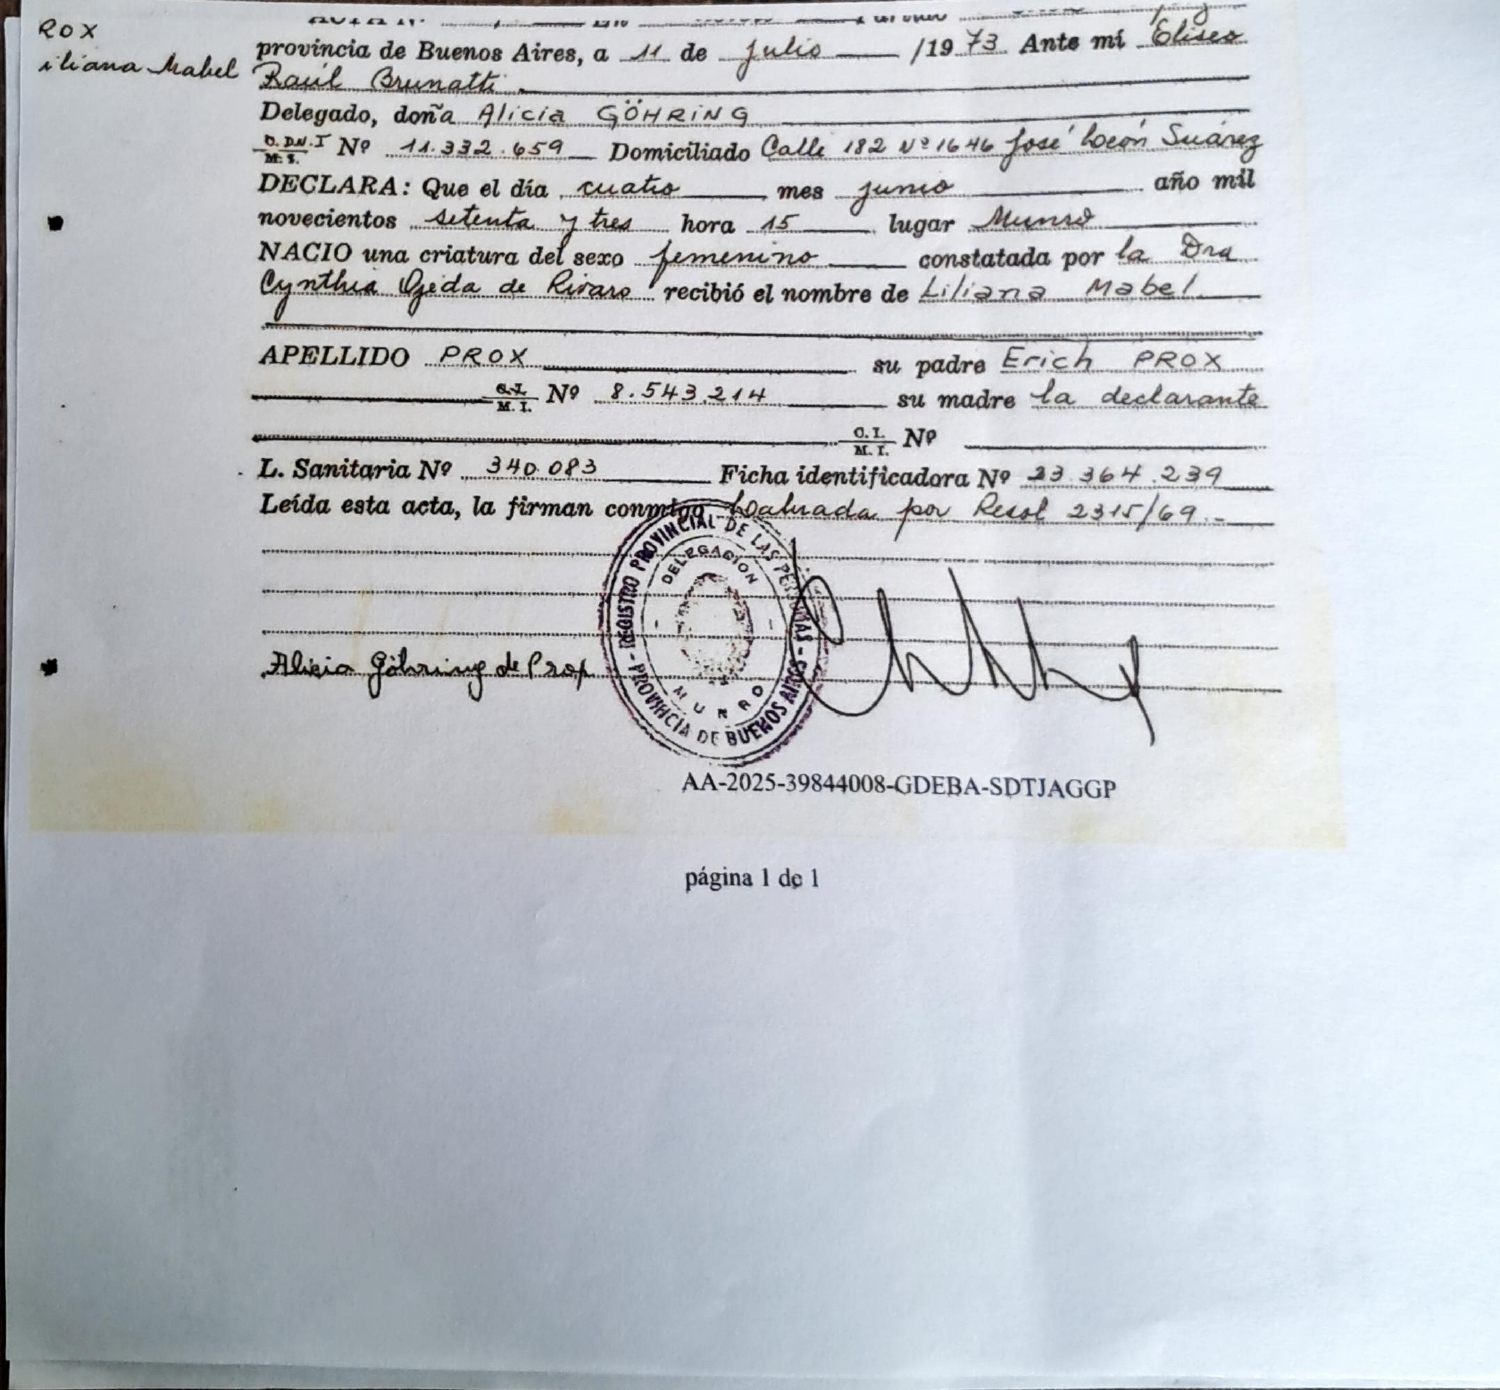 ROX
iliana Mabel
ACTA Nº
provincia de Buenos Aires, a 11 de julio /1973 Ante mí Eliseo
Raúl Brunatti
Delegado, doña Alicia GÖHRING
D.N.I Nº 11.332.659 Domiciliado Calle 182 Nº 1646 José León Suárez
M. S.
DECLARA: Que el día cuatro mes junio año mil
novecientos setenta y tres hora 15 lugar Munro
NACIO una criatura del sexo femenino constatada por la Dra
Cynthia Ojeda de Rivaro recibió el nombre de Liliana Mabel
APELLIDO PROX su padre Erich PROX
C.I. M. I. Nº 8.543.214 su madre la declarante
C. I. M. I. Nº
L. Sanitaria Nº 340.083 Ficha identificadora Nº 23.364.239
Leída esta acta, la firman conmigo Labrada por Resol 2315/69.-
REGISTRO PROVINCIAL DE LAS PERSONAS - PROVINCIA DE BUENOS AIRES -
DELEGACION
MUNRO
Alicia Göhring de Prox
AA-2025-39844008-GDEBA-SDTJAGGP
página 1 de 1